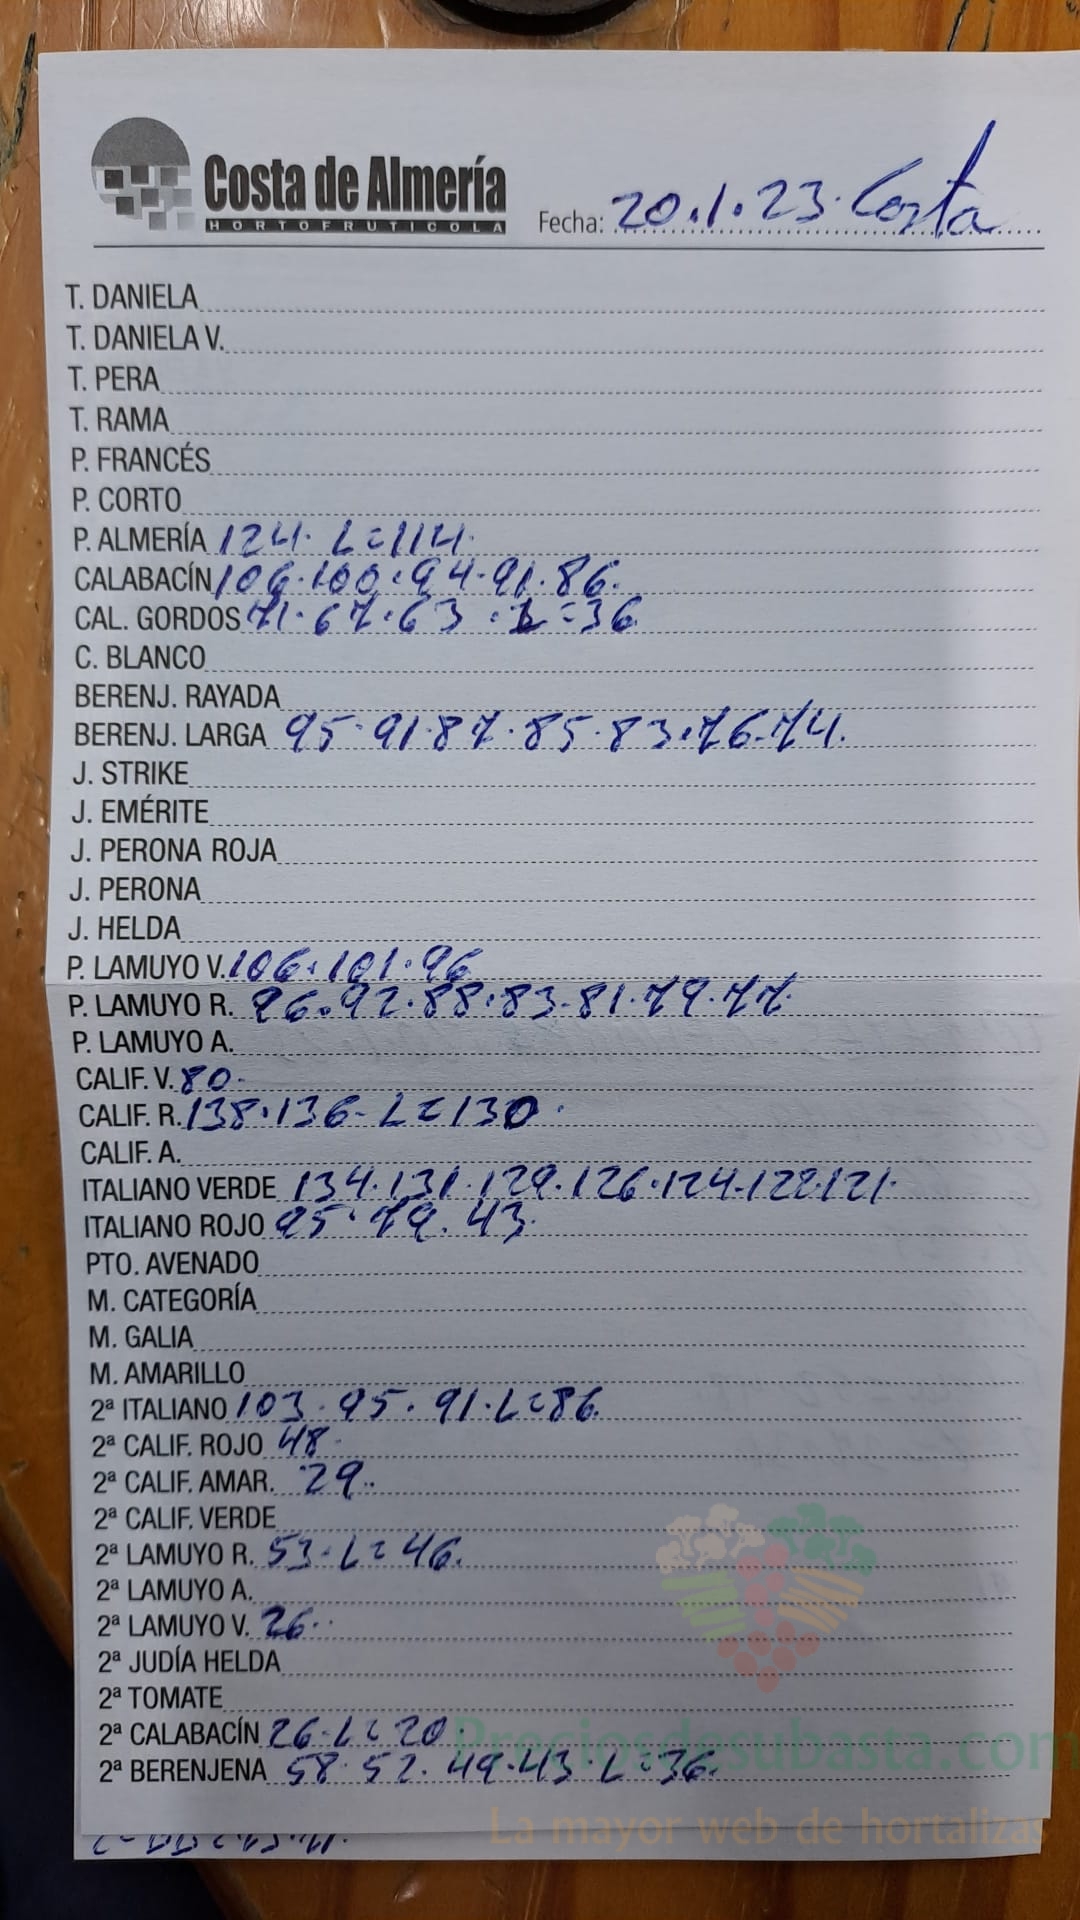 Costa de Almería
HORTOFRUTICOLA
Fecha: 20.1.23. Costa
T. DANIELA
T. DANIELA V.
T. PERA
T. RAMA
P. FRANCÉS
P. CORTO
P. ALMERÍA 124. L=114.
CALABACÍN 106.100.94.91.86.
CAL. GORDOS 71.67.63. L=36
C. BLANCO
BERENJ. RAYADA
BERENJ. LARGA 95.91.87.85.83.76.74.
J. STRIKE
J. EMÉRITE
J. PERONA ROJA
J. PERONA
J. HELDA
P. LAMUYO V. 106.101.96
P. LAMUYO R. 96.92.88.83.81.79.77.
P. LAMUYO A.
CALIF. V. 80.
CALIF. R. 138.136. L=130.
CALIF. A.
ITALIANO VERDE 134.131.129.126.124.122.121.
ITALIANO ROJO 95.79.43.
PTO. AVENADO
M. CATEGORÍA
M. GALIA
M. AMARILLO
2ª ITALIANO 103.95.91.L=86.
2ª CALIF. ROJO 48.
2ª CALIF. AMAR. 29.
2ª CALIF. VERDE
2ª LAMUYO R. 53. L=46.
2ª LAMUYO A.
2ª LAMUYO V. 26.
2ª JUDÍA HELDA
2ª TOMATE
2ª CALABACÍN 26.L=20
2ª BERENJENA 58.52.49.43.L=36.
Preciosdesubasta.com
La mayor web de hortalizas